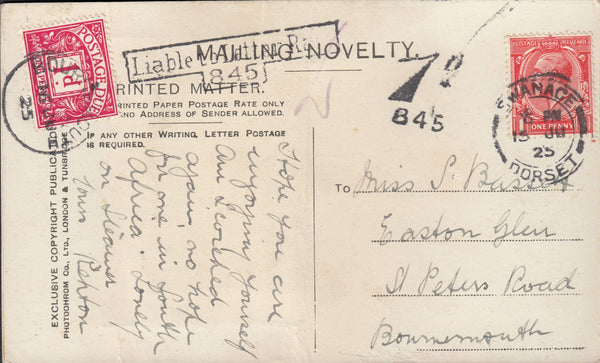 MAILING NOVELTY.
Liable to
845
PRINTED MATTER.
PRINTED PAPER POSTAGE RATE ONLY
AND ADDRESS OF SENDER ALLOWED.
IF ANY OTHER WRITING, LETTER POSTAGE
IS REQUIRED.
EXCLUSIVE COPYRIGHT PUBLICATION
PHOTOCHROM CO., LTD., LONDON & TUNBRIDGE
POSTAGE DUE
1D
25
1d
845
POSTAGE
ONE PENNY
SWANAGE
PM
25
DORSET
Hope you are
enjoying yourself
Am I crushed
again, no hope
for one in South
Africa. Lovely
on Steamer
Yours
TO Miss S. Bassett
Easton Glen
St Peters Road
Bournemouth